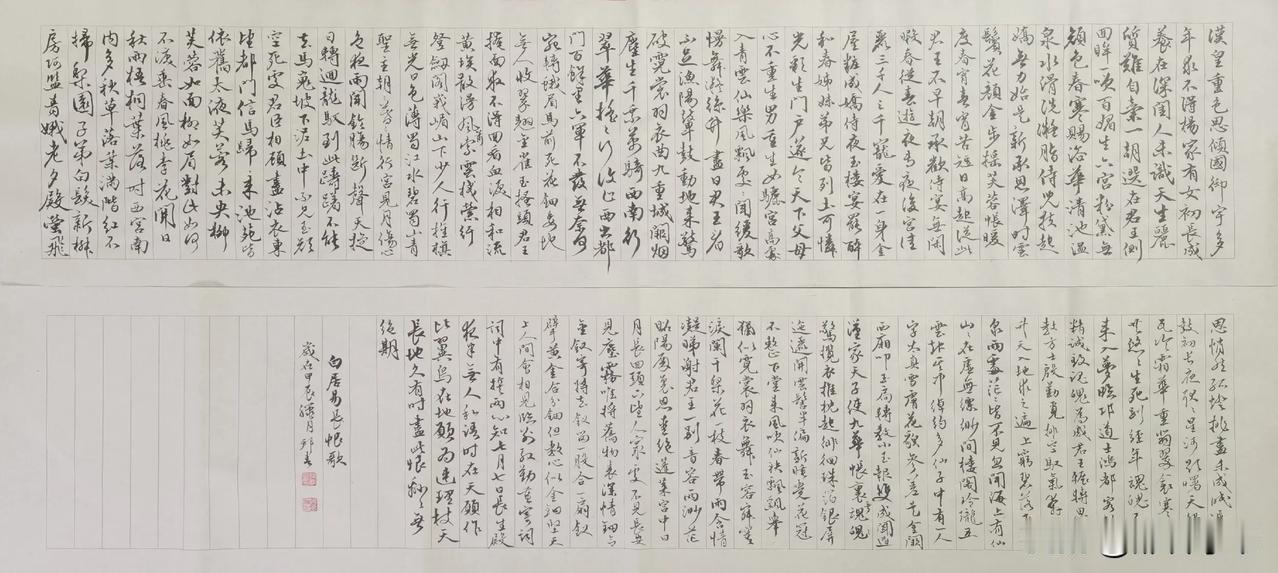 漢皇重色思傾國御宇多
年求不得楊家有女初長成
養在深閨人未識天生麗
質難自棄一朝選在君王側
回眸一笑百媚生六宮粉黛無
顏色春寒賜浴華清池溫
泉水滑洗凝脂侍兒扶起
嬌無力始是新承恩澤時雲
鬢花顏金步搖芙蓉帳暖
度春宵春宵苦短日高起從此
君王不早朝承歡侍宴無閑
暇春從春遊夜專夜後宮佳
麗三千人三千寵愛在一身金
屋妝成嬌侍夜玉樓宴罷醉
和春姊妹弟兄皆列土可憐
光彩生門戶遂令天下父母
心不重生男重生女驪宮高處
入青雲仙樂風飄處處聞緩歌
慢舞凝絲竹盡日君王看
不足漁陽鼙鼓動地來驚
破霓裳羽衣曲九重城闕烟
塵生千乘萬騎西南行
翠華搖搖行復止西出都
門百餘里六軍不發無奈何
宛轉蛾眉馬前死花鈿委地
無人收翠翹金雀玉搔頭君王
掩面救不得回看血淚相和流
黃埃散漫風蕭索雲棧縈紆
登劍閣峨嵋山下少人行旌旗
無光日色薄蜀江水碧蜀山青
聖主朝朝暮暮情行宮見月傷心
色夜雨聞鈴腸斷聲天旋
日轉迴龍馭到此躊躇不能
去馬嵬坡下泥土中不見玉顏
空死處君臣相顧盡沾衣東
望都門信馬歸歸來池苑皆
依舊太液芙蓉未央柳
芙蓉如面柳如眉對此如何
不淚垂春風桃李花開日
秋雨梧桐葉落時西宮南
內多秋草落葉滿階紅不
掃梨園子弟白髮新椒
房阿監青娥老夕殿螢飛
思悄然孤燈挑盡未成眠遲
鼓初長夜耿耿星河欲曙天鴛
瓦冷霜華重翡翠衾寒
悠悠生死別經年魂魄不
來入夢臨邛道士鴻都客
精誠致魂魄為感君王輾轉思
教方士殷勤覓排空馭氣奔
升天入地求之遍上窮碧落下
泉兩處茫茫皆不見忽聞海上有仙
山山在虛無縹緲間樓閣玲瓏五
雲起其中綽約多仙子中有一人
字太真雪膚花貌參差是金闕
西廂叩玉扃轉教小玉報雙成聞道
漢家天子使九華帳裏夢魂
驚攬衣推枕起徘徊珠箔銀屏
迤邐開雲髻半偏新睡覺花冠
不整下堂來風吹仙袂飄飄舉
猶似霓裳羽衣舞玉容寂寞
淚闌干梨花一枝春帶雨含情
凝睇謝君王一別音容兩渺茫
昭陽殿裏恩愛絕蓬萊宮中日
月長回頭下望人寰處不見長安
見塵霧唯將舊物表深情鈿合
金釵寄將去釵留一股合一扇釵
擘黃金合分鈿但教心似金鈿堅天
上人間會相見臨別殷勤重寄詞
詞中有誓兩心知七月七日長生殿
夜半無人私語時在天願作
比翼鳥在地願為連理枝天
長地久有時盡此恨綿綿無
絕期
白居易長恨歌
歲在甲辰臘月